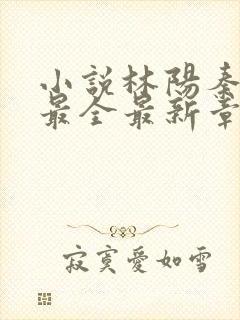 小説林陽秦
最全最新章
寂寞愛如雪